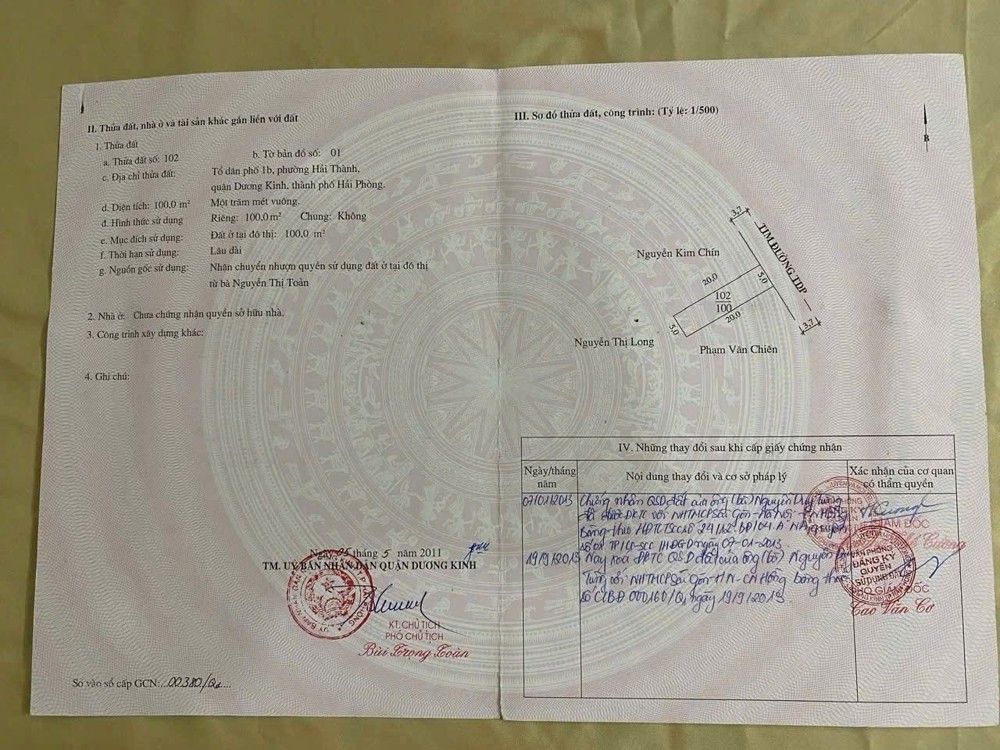 II. Thửa đất, nhà ở và tài sản khác gắn liền với đất
1. Thửa đất
a. Thửa đất số: 102 b. Tờ bản đồ số: 01
c. Địa chỉ thửa đất: Tổ dân phố 1b, phường Hải Thành,
quận Dương Kinh, thành phố Hải Phòng.
d. Diện tích: 100,0 m² Một trăm mét vuông.
đ. Hình thức sử dụng Riêng: 100,0 m² Chung: Không
e. Mục đích sử dụng: Đất ở tại đô thị: 100,0 m²
f. Thời hạn sử dụng: Lâu dài
g. Nguồn gốc sử dụng: Nhận chuyển nhượn quyền sử dụng đất ở tại đô thị
từ bà Nguyễn Thị Toản
2. Nhà ở: Chưa chứng nhận quyền sở hữu nhà.
3. Công trình xây dựng khác:
4. Ghi chú:
Ngày 05 tháng 5 năm 2011
TM. UỶ BAN NHÂN DÂN QUẬN DƯƠNG KINH
KT. CHỦ TỊCH
PHÓ CHỦ TỊCH
Bùi Trọng Toàn
Số vào sổ cấp GCN: 00380/Q4
III. Sơ đồ thửa đất, công trình: (Tỷ lệ: 1/500)
B
3,7
TIM ĐƯỜNG TDP
Nguyễn Kim Chín
20.0
5.0
102
100
5.0
20.0
3,7
Nguyễn Thị Long
Phạm Văn Chiên
IV. Những thay đổi sau khi cấp giấy chứng nhận
Ngày/tháng năm
Nội dung thay đổi và cơ sở pháp lý
Xác nhận của cơ quan có thẩm quyền
07/01/2013 Chứng nhận QSD đất của ông (bà) Nguyễn
với NHTMCP Sài Gòn - Hà Nội - CN Hồng
Bàng theo HĐTCTS số
ngày 07-01-2013
19/9/2013 Xóa QSD đất của ông (bà) Nguyễn
Tùng với NHTMCP Sài Gòn - HN - CN Hồng Bàng theo
số 000160/Q4 ngày 19/9/2013
GIÁM ĐỐC
Cường
VĂN PHÒNG
ĐĂNG KÝ
QUYỀN
SỬ DỤNG ĐẤT
PHÓ GIÁM ĐỐC
Cao Văn Cơ